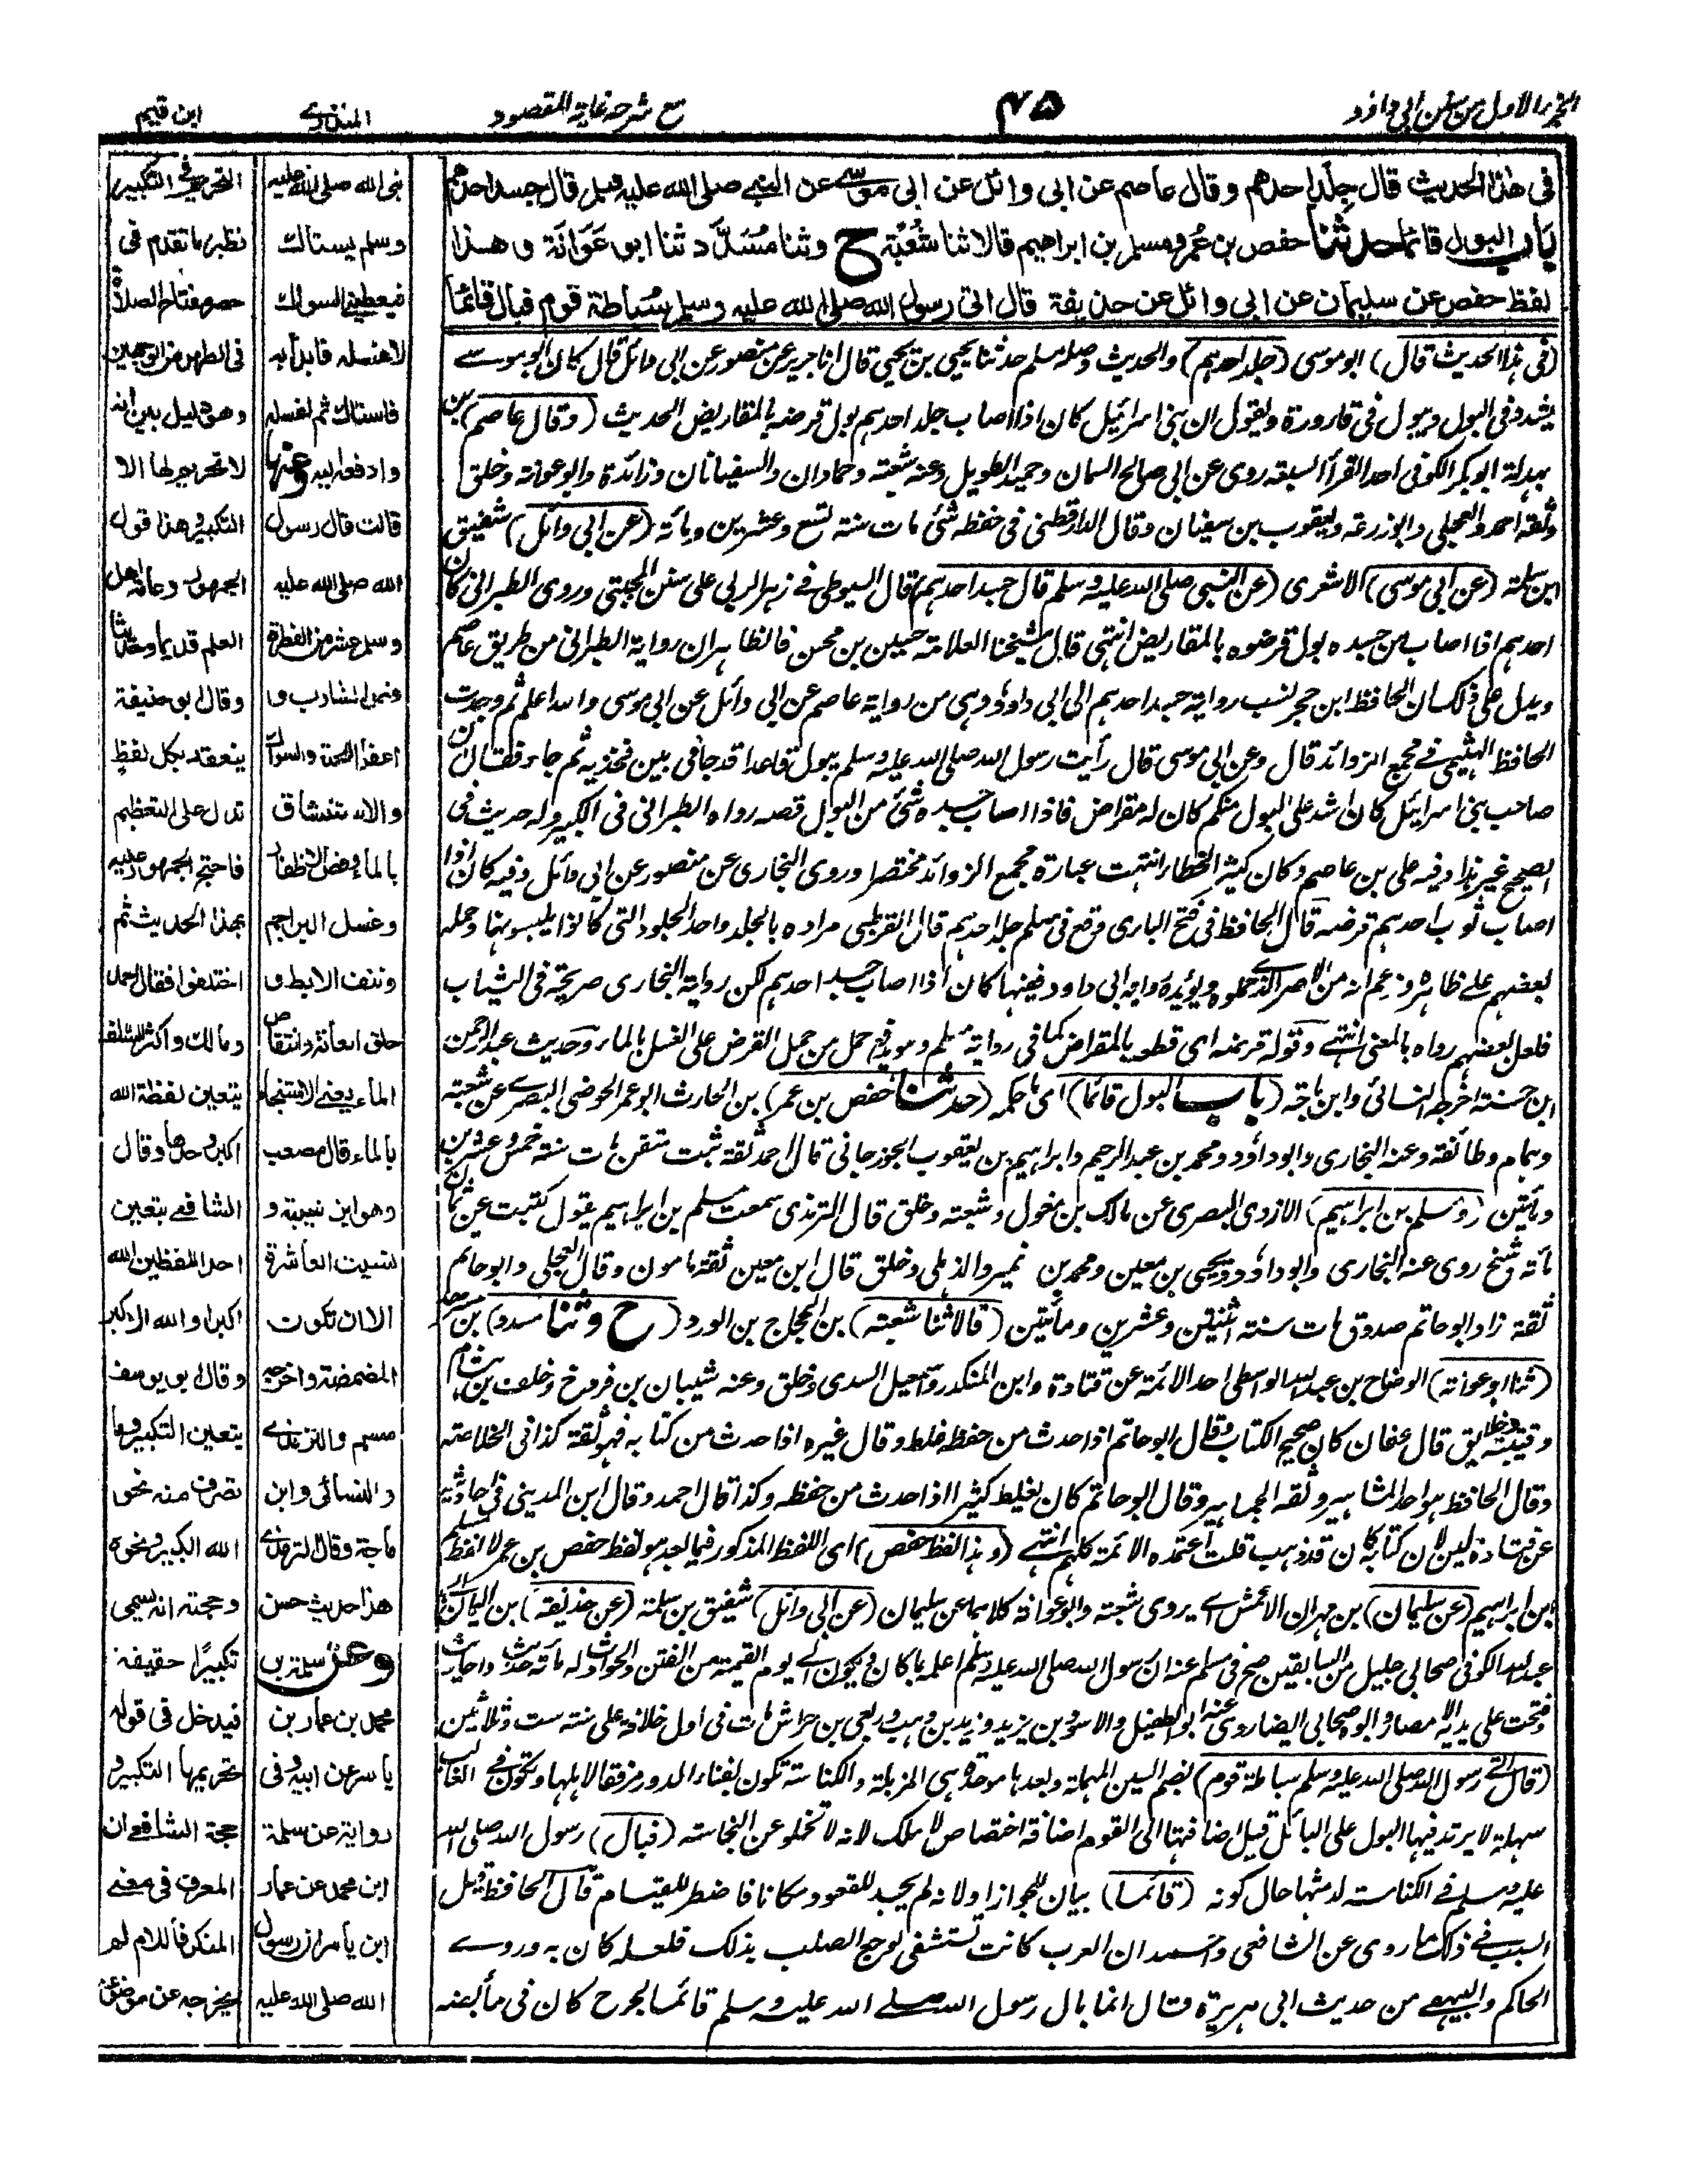 الجزء الاول من سنن ابى داؤد
٧٥
مع شرحه غاية المقصود
المنذرى
ابن قيم
فى هذا الحديث قال جلد احدهم وقال عاصم عن ابى وائل عن ابى موسى عن النبى صلى الله عليه وسلم قال جسد احدهم
باب البول قائما حدثنا حفص بن عمر ومسلم بن ابراهيم قالا ثنا شعبة ح وثنا مسدد ثنا ابو عوانة وهذا
لفظ حفص عن سليمان عن ابى وائل عن حذيفة قال اتى رسول الله صلى الله عليه وسلم سباطة قوم فبال قائما
(فى هذا الحديث قال) ابو موسى (جلد احدهم) والحديث وصله مسلم حدثنا يحيى بن يحيى قال انا جرير عن منصور عن ابى وائل قال كان ابو موسى
يشدد فى البول ويبول فى قارورة ويقول ان بنى اسرائيل كان اذا اصاب جلد احدهم بول قرضه بالمقاريض الحديث (وقال عاصم) بن
بهدلة ابو بكر الكوفى احد القرأ السبعة روى عن ابى صالح السمان وحميد الطويل وعنه شعبة وحمادان والسفيانان وزائدة وابو عوانة وخلق
وثقه احمد والعجلى وابو زرعة ويعقوب بن سفيان وقال الدارقطنى فى حفظه شئ مات سنة تسع وعشرين ومائة (عن ابى وائل) شقيق
ابن سلمة (عن ابى موسى) الاشعرى (عن النبى صلى الله عليه وسلم قال جسد احدهم) قال السيوطى فى زهر الربى على سنن المجتبى وروى الطبرانى كان
احدهم اذا اصاب من جسده بول قرضوه بالمقاريض انتهى قال شيخنا العلامة حسين بن محسن فالظاهر ان رواية الطبرانى من طريق عاصم
ويدل على ذلك ان الحافظ ابن حجر نسب رواية جسد احدهم الى ابى داود وهى من رواية عاصم عن ابى وائل عن ابى موسى والله اعلم ثم وجدت
الحافظ الهيثمى فى مجمع الزوائد قال وعن ابى موسى قال رأيت رسول الله صلى الله عليه وسلم يبول قاعدا قد جافى بين فخذيه ثم جاء فقال ان
صاحب بنى اسرائيل كان اشد على البول منكم كان له مقراض فاذا اصاب جسده شئ من البول قصه رواه الطبرانى فى الكبير وله حديث فى
الصحيح غير هذا وفيه على بن عاصم وكان كثير الخطأ انتهت عبارة مجمع الزوائد مختصرا وروى البخارى عن منصور عن ابى وائل وفيه كان اذا
اصاب ثوب احدهم قرضه قال الحافظ فى فتح البارى وقع فى مسلم جلد احدهم قال القرطبى مراده بالجلد واحد الجلود التى كانوا يلبسونها وحمله
بعضهم على ظاهره وزعم انه من الاصر الذى حملوه ويؤيده رواية ابى داود ففيها كان اذا اصاب جسد احدهم لكن رواية البخارى صريحة فى الثياب
فلعل بعضهم رواه بالمعنى انتهى وقوله قرضه اى قطعه بالمقراض كما فى رواية مسلم وهو يدفع حمل من حمل القرض على الغسل بالماء وحديث عبد الرحمن
ابن حسنة اخرجه النسائى وابن ماجة (باب البول قائما) اى ما حكمه (حدثنا حفص بن عمر) بن الحارث ابو عمر الحوضى البصرى عن شعبة
وهمام وطائفة وعنه البخارى وابو داؤد ومحمد بن عبد الرحيم وابراهيم بن يعقوب الجوزجانى قال احمد ثقة ثبت متقن مات سنة خمس وعشرين
ومأتين (ومسلم بن ابراهيم) الازدى البصرى عن مالك بن مغول وشعبة وخلق قال الترمذى سمعت مسلم بن ابراهيم يقول كتبت عن ثمان
مائة شيخ روى عنه البخارى وابو داؤد ويحيى بن معين ومحمد بن نمير والذهلى وخلق قال ابن معين ثقة مامون وقال العجلى وابو حاتم
ثقة زاد ابو حاتم صدوق مات سنة اثنتين وعشرين ومأتين (قالا ثنا شعبة) بن الحجاج بن الورد (ح وثنا مسدد) بن مسرهد
(ثنا ابو عوانة) الوضاح بن عبد الله الواسطى احد الائمة عن قتادة وابن المنكدر واسمعيل السدى وخلق وعنه شيبان بن فروخ وخلف بن هشام
وقتيبة وخلائق قال عفان كان صحيح الكتاب وقال ابو حاتم اذا حدث من حفظه غلط وقال غيره اذا حدث من كتابه فهو ثقة كذا فى الخلاصة
وقال الحافظ هو احد المشاهير وثقه الجماهير وقال ابو حاتم كان يغلط كثيرا اذا حدث من حفظه وكذا قال احمد وقال ابن المدينى فى احاديثه
عن قتادة لين لان كتابه كان قد ذهب قلت اعتمده الائمة كلهم انتهى (وهذا لفظ حفص) اى اللفظ المذكور فيما بعد هو لفظ حفص بن عمر لا لفظ مسلم
ابن ابراهيم (عن سليمان) بن مهران الاعمش اى يروى شعبة وابو عوانة كلاهما عن سليمان (عن ابى وائل) شقيق بن سلمة (عن حذيفة) بن اليمان
عبد الله الكوفى صحابى جليل من السابقين صح فى مسلم عنه ان رسول الله صلى الله عليه وسلم اعلمه بما كان وما يكون الى يوم القيمة من الفتن والحوادث له مائة حديث واحاديث
وفتحت على يديه الامصار وابوه صحابى ايضا روى عنه ابو الطفيل والاسود بن يزيد وزيد بن وهب وربعى بن حراش مات فى اول خلافة على سنة ست وثلاثين
(قال اتى رسول الله صلى الله عليه وسلم سباطة قوم) بضم السين المهملة وبعدها موحدة هى المزبلة والكناسة تكون بفناء الدور مرفقا لاهلها وتكون فى الغالب
سهلة لا يرتد فيها البول على البائل قيل اضافتها الى القوم اضافة اختصاص لا ملك لانه لا تخلو عن النجاسة (فبال) رسول الله صلى الله
عليه وسلم فى الكناسة لدمثها حال كونه (قائما) بيان للجواز اولانه لم يجد للقعود مكانا فاضطر للقيام قال الحافظ قيل
السبب فى ذلك ما روى عن الشافعى واحمد ان العرب كانت تستشفى لوجع الصلب بذلك فلعله كان به وروى
الحاكم والبيهقى من حديث ابى هريرة وقال انما بال رسول الله صلى الله عليه وسلم قائما لجرح كان فى مأبضه
نبى الله صلى الله عليه
وسلم يستاك
فيعطينى السواك
لاغسله فابدأ به
فاستاك ثم اغسله
وادفعه اليه وعنها
قالت قال رسول
الله صلى الله عليه
وسلم عشر من الفطرة
وقص الشارب و
اعفاء اللحية والسواك
والاستنشاق
بالماء وقص الاظفار
وغسل البراجم
ونتف الابط و
حلق العانة وانتقاص
الماء يعنى الاستنجاء
بالماء قال مصعب
وهو ابن شيبة و
نسيت العاشرة
الا ان تكون
المضمضة واخرجه
مسلم والترمذى
والنسائى وابن
ماجة وقال الترمذى
هذا حديث حسن
وعن سلمة بن
محمد بن عمار بن
ياسر عن ابيه وفى
رواية عن سلمة
ابن محمد عن عمار
ابن ياسر ان رسول
الله صلى الله عليه
التحريم فى التكبير
نظير ما تقدم فى
حصر مفتاح الصلاة
فى الطهور من الوجهين
وهو دليل بين انه
لا تحريم لها الا
التكبير وهذا قول
الجمهور وعامة اهل
العلم قديما وحديثا
وقال ابو حنيفة
ينعقد بكل لفظ
تدل على التعظيم
فاحتج الجمهور عليه
بهذا الحديث ثم
اختلفوا فقال احمد
ومالك واكثر السلف
يتعين لفظة الله
اكبر وحدها وقال
الشافعى يتعين
احد اللفظين الله
اكبر او الله الاكبر
وقال ابو يوسف
يتعين التكبير وما
تصرف منه نحو
الله الكبير ونحوه
وحجته انه يسمى
تكبيرا حقيقة
فيدخل فى قوله
تحريمها التكبير و
حجة الشافعى ان
المعرف فى معنى
المنكر فاللام لم
يخرجه عن موضوعه